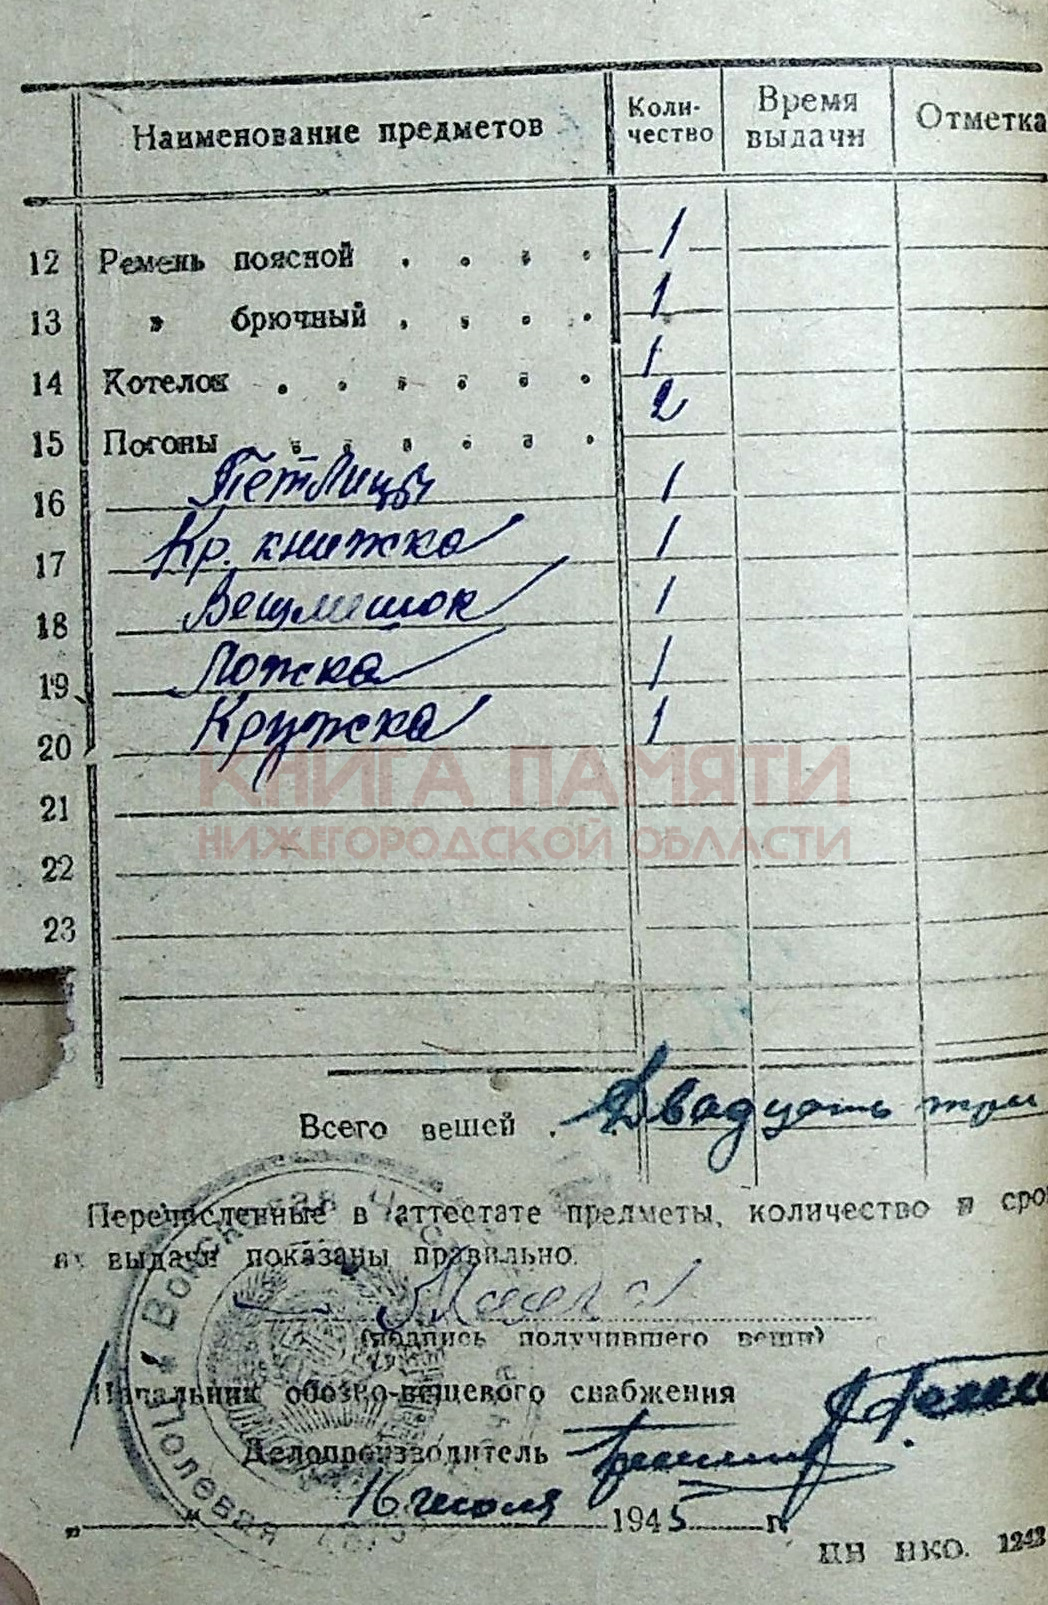 Наименование предметов Коли-чество Время выдачи Отметка
12 Ремень поясной . . . . 1
13 » брючный . . . . 1
14 Котелок . . . . . . 1
15 Погоны . . . . . . 2
16 Петлицы 1
17 Кр. книжка 1
18 Вещмешок 1
19 Ложка 1
20 Кружка 1
КНИГА ПАМЯТИ
21
НИЖЕГОРОДСКОЙ ОБЛАСТИ
22
23
Всего вещей . Двадцать три
Перечисленные в аттестате предметы, количество и сро
их выдачи показаны правильно.
(подпись получившего вещи)
Начальник обозно-вещевого снабжения
Делопроизводитель
„ 16 " июля 1945 г.
ЦВ НКО. 1243
Войсковая часть
Полевая